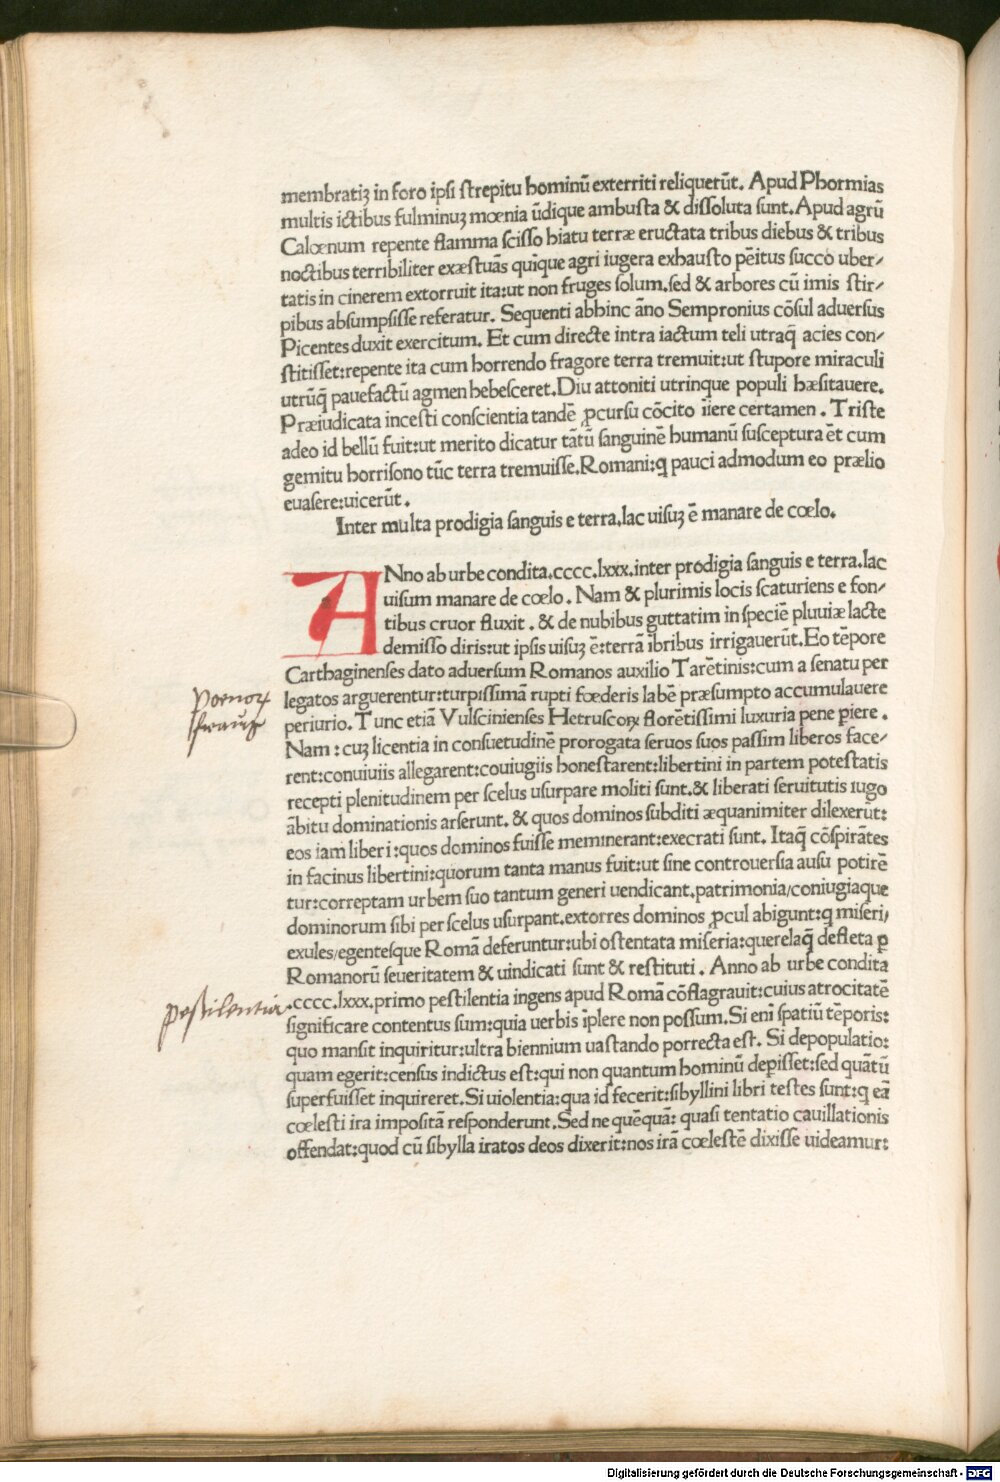 membratiʒ in foro ipſi ſtrepitu hominū exterriti reliquerūt. Apud Phormias
multis ictibus fulminuʒ mœnia ūdique ambuſta & diſſoluta ſunt. Apud agrū
Calœnum repente flamma ſciſſo hiatu terræ eructata tribus diebus & tribus
noctibus terribiliter exæſtuās quīque agri iugera exhauſto pēitus ſucco uber/
tatis in cinerem extorruit ita:ut non fruges ſolum.ſed & arbores cū imis ſtir/
pibus abſumpſiſſe referatur. Sequenti abbinc āno Sempronius cōſul aduerſus
Picentes duxit exercitum. Et cum directe intra iactum teli utraq̄ acies con/
ſtitiſſet:repente ita cum horrendo fragore terra tremuit:ut ſtupore miraculi
utrūq̄ pauefactū agmen hebeſceret. Diu attoniti utrinque populi hæſitauere.
Præiudicata inceſti conſcientia tandē ꝓcurſu cōcito iīere certamen. Triſte
adeo id bellū fuit:ut merito dicatur tātū ſanguinē humanū ſuſceptura ēt cum
gemitu horriſono tūc terra tremuiſſe. Romani:q̄ pauci admodum eo prælio
euaſere:uicerūt.
Inter multa prodigia ſanguis e terra.lac uiſuʒ ē manare de cœlo.
ANno ab urbe condita.cccc.lxxx.inter prodigia ſanguis e terra.lac
uiſum manare de cœlo. Nam & plurimis locis ſcaturiens e fon/
tibus cruor fluxit. & de nubibus guttatim in ſpeciē pluuiæ lacte
demiſſo diris:ut ipſis uiſuʒ ē:terrā ībribus irrigauerūt. Eo tēpore
Carthaginenſes dato aduerſum Romanos auxilio Tarētinis:cum a ſenatu per
legatos arguerentur:turpiſſimā rupti fœderis labē præſumpto accumulauere
periurio. Tunc etiā Vulſcinienſes Hetruſcoꝝ florētiſſimi luxuria pene ꝑiere.
Nam: cuʒ licentia in conſuetudinē prorogata ſeruos ſuos paſſim liberos face/
rent:conuiuiis allegarent:couiugiis honeſtarent:libertini in partem poteſtatis
recepti plenitudinem per ſcelus uſurpare moliti ſunt.& liberati ſeruitutis iugo
ābitu dominationis arſerunt. & quos dominos ſubditi æquanimiter dilexerūt:
eos iam liberi:quos dominos fuiſſe meminerant:execrati ſunt. Itaq̄ cōſpirātes
in facinus libertini:quorum tanta manus fuit:ut ſine controuerſia auſu potirē
tur:correptam urbem ſuo tantum generi uendicant.patrimonia/coniugiaque
dominorum ſibi per ſcelus uſurpant.extorres dominos ꝓcul abigunt:q̄ miſeri/
exules/egenteſque Romā deferuntur:ubi oſtentata miſeria:querelaq̄ defleta ꝑ
Romanorū ſeueritatem & uindicati ſunt & reſtituti. Anno ab urbe condita
.cccc.lxxx.primo peſtilentia ingens apud Romā cōflagrauit:cuius atrocitatē
ſignificare contentus ſum:quia uerbis īplere non poſſum. Si enī ſpatiū tēporis:
quo manſit inquiritur:ultra biennium uaſtando porrecta eſt. Si depopulatio:
quam egerit:cenſus indictus eſt:qui non quantum hominū deꝑiſſet:ſed quātū
ſuperfuiſſet inquireret. Si uiolentia:qua id fecerit:ſibyllini libri teſtes ſunt:q̄ eā
cœleſti ira impoſitā reſponderunt. Sed ne quēquā: quaſi tentatio cauillationis
offendat:quod cū ſibylla iratos deos dixerit:nos irā cœleſtē dixiſſe uideamur:
poenoꝝ
peſtilentia
Digitalisierung gefördert durch die Deutsche Forschungsgemeinschaft - DFG